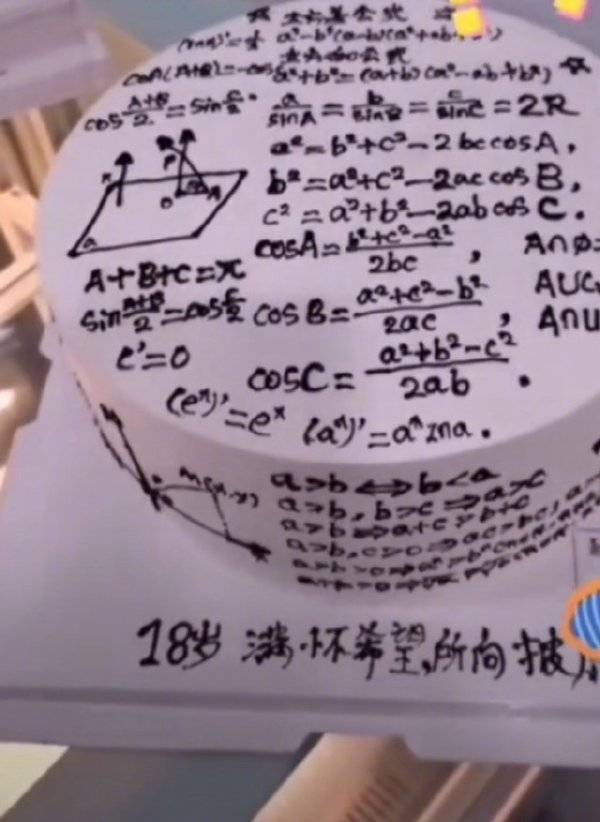 cos(A+B)=-cos
a³+b³=(a+b)(a²-ab+b²)
cos A+B/2 = sin C/2
a/sinA = b/sinB = c/sinC = 2R
a²=b²+c²-2bc cosA,
b²=a²+c²-2ac cos B,
c²=a²+b²-2ab cos C.
A+B+C=π
cosA= b²+c²-a²/2bc ,
A∩Ø=
sin A+B/2 = cos C/2
cos B= a²+c²-b²/2ac ,
AUC
A∩U
c'=0
cosC= a²+b²-c²/2ab .
(eˣ)'=eˣ
(aˣ)'=aˣlna.
M(x,y)
a>b⟺b<a
a>b, b>c⇒a>c
a>b⇒a+c>b+c
a>b, c>0⇒ac>bc
18岁 满怀希望,所向披